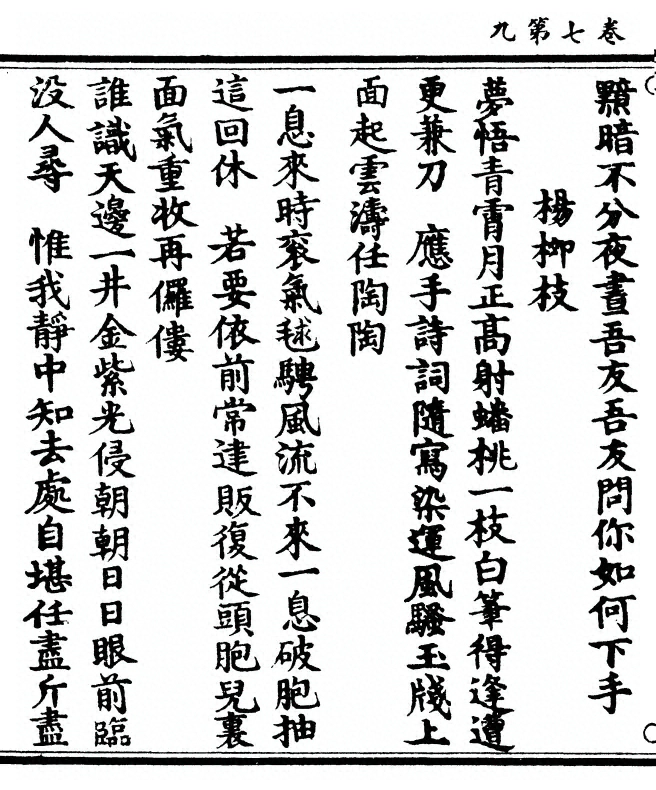 卷七第九
顆暗不分夜晝吾友吾友問你如何下手
楊柳枝
夢悟青霄月正高射蟠桃一枝白筆得逢遭
更兼刀　應手詩詞隨寫染運風騷玉牋上
面起雲濤任陶陶
一息來時衮氣毬騁風流不來一息破胞抽
這回休　若要依前常達販復從頭胞兒裏
面氣重收再儸僂
誰識天邊一井金紫光侵朝朝日日眼前臨
没人尋　惟我靜中知去處自堪任盡斤盡